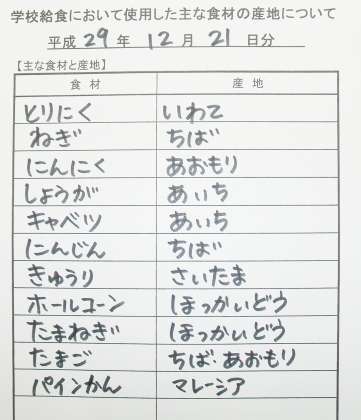 学校給食において使用した主な食材の産地について
平成 29 年 12 月 21 日分
【主な食材と産地】
食材 産地
とりにく いわて
ねぎ ちば
にんにく あおもり
しょうが あいち
キャベツ あいち
にんじん ちば
きゅうり さいたま
ホールコーン ほっかいどう
たまねぎ ほっかいどう
たまご ちば・あおもり
パインかん マレーシア